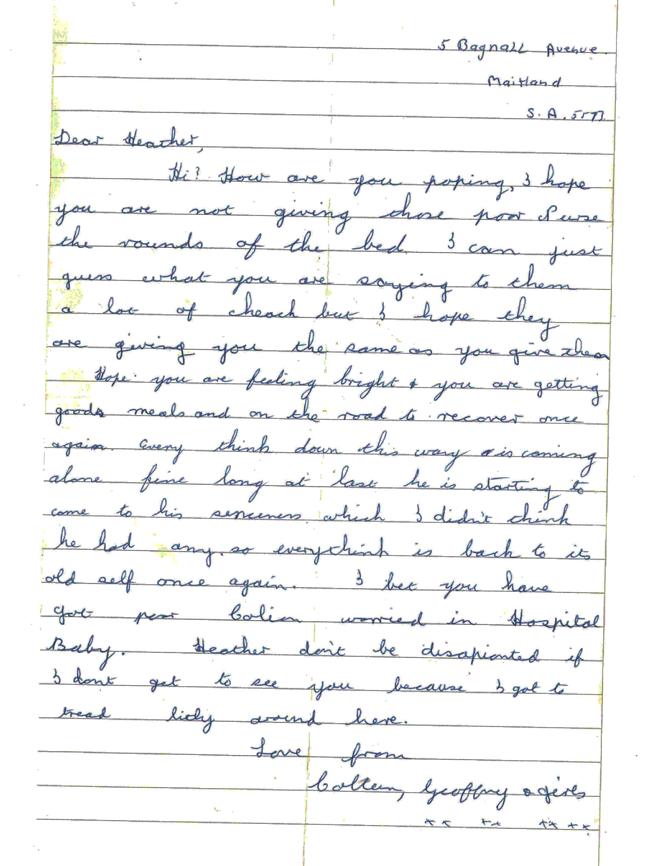 5 Bagnall Avenue.
Maitland
S.A. 5573
Dear Heather,
Hi? How are you poping, I hope
you are not giving those poor Nurse
the rounds of the bed. I can just
guess what you are saying to them
a lot of cheach but I hope they
are giving you the same as you give them
Hope you are feeling bright & you are getting
goods meals and on the road to recover once
again. Every think down this way is coming
alone fine long at last he is starting to
come to his senceness which I didn't think
he had any, so everythink is back to its
old self once again. I bet you have
got poor Colin worried in Hospital
Baby. Heather don't be disapionted if
I dont get to see you because I got to
tread lidy around here.
Love from
Colleen, Geoffrey & girls
xx xx xx xx